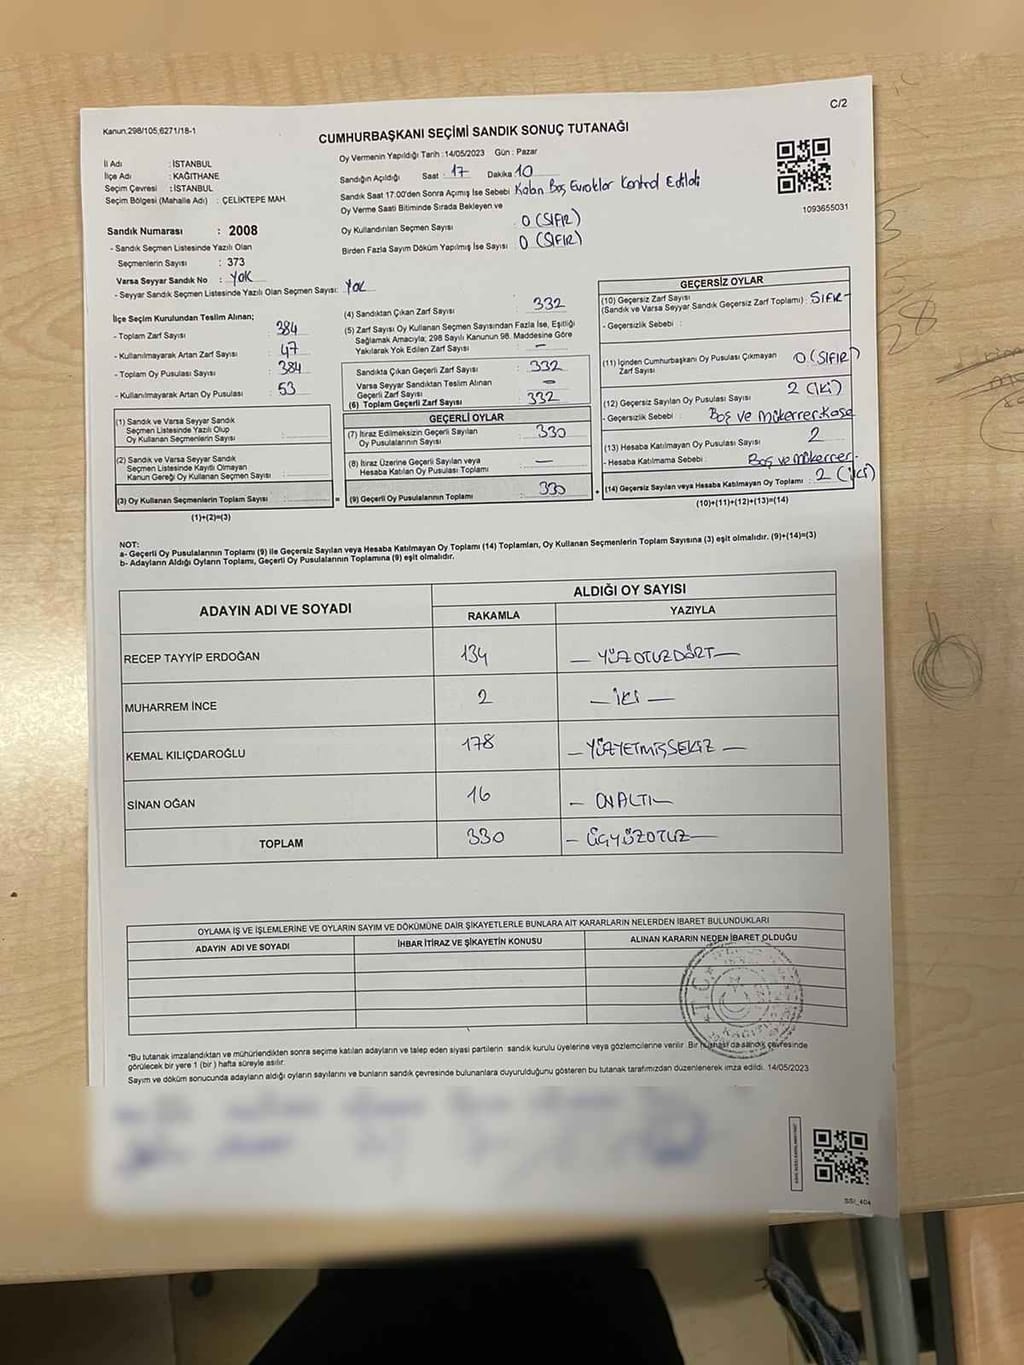 C/2
Kanun;298/105,6271/18-1
CUMHURBAŞKANI SEÇİMİ SANDIK SONUÇ TUTANAĞI
İl Adı : İSTANBUL
İlçe Adı : KAĞITHANE
Seçim Çevresi : İSTANBUL
Seçim Bölgesi (Mahalle Adı) : ÇELİKTEPE MAH.
Oy Vermenin Yapıldığı Tarih : 14/05/2023 Gün : Pazar
Sandığın Açıldığı Saat : 17 Dakika 10
Sandık Saat 17:00'den Sonra Açımış İse Sebebi Kalan Boş Evraklar Kontrol Edildi
Oy Verme Saati Bitiminde Sırada Bekleyen ve
Oy Kullandırılan Seçmen Sayısı : 0 (SIFIR)
Birden Fazla Sayım Döküm Yapılmış İse Sayısı : 0 (SIFIR)
1093655031
Sandık Numarası : 2008
- Sandık Seçmen Listesinde Yazılı Olan
Seçmenlerin Sayısı : 373
Varsa Seyyar Sandık No : YOK
- Seyyar Sandık Seçmen Listesinde Yazılı Olan Seçmen Sayısı: Yok
İlçe Seçim Kurulundan Teslim Alınan;
- Toplam Zarf Sayısı : 384
- Kullanılmayarak Artan Zarf Sayısı : 47
- Toplam Oy Pusulası Sayısı : 384
- Kullanılmayarak Artan Oy Pusulası : 53
(1) Sandık ve Varsa Seyyar Sandık
Seçmen Listesinde Yazılı Olup
Oy Kullanan Seçmenlerin Sayısı :
(2) Sandık ve Varsa Seyyar Sandık
Seçmen Listesinde Kayıtlı Olmayan
Kanun Gereği Oy Kullanan Seçmen Sayısı :
(3) Oy Kullanan Seçmenlerin Toplam Sayısı :
(1)+(2)=(3)
=
(4) Sandıktan Çıkan Zarf Sayısı : 332
(5) Zarf Sayısı Oy Kullanan Seçmen Sayısından Fazla İse, Eşitliği
Sağlamak Amacıyla; 298 Sayılı Kanunun 98. Maddesine Göre
Yakılarak Yok Edilen Zarf Sayısı : —
Sandıkta Çıkan Geçerli Zarf Sayısı : 332
Varsa Seyyar Sandıktan Teslim Alınan
Geçerli Zarf Sayısı : —
(6) Toplam Geçerli Zarf Sayısı : 332
GEÇERLİ OYLAR
(7) İtiraz Edilmeksizin Geçerli Sayılan
Oy Pusulalarının Sayısı : 330
(8) İtiraz Üzerine Geçerli Sayılan veya
Hesaba Katılan Oy Pusulası Toplamı : —
(9) Geçerli Oy Pusulalarının Toplamı : 330
+
GEÇERSİZ OYLAR
(10) Geçersiz Zarf Sayısı
(Sandık ve Varsa Seyyar Sandık Geçersiz Zarf Toplamı) : SIFIR-
- Geçersizlik Sebebi :
(11) İçinden Cumhurbaşkanı Oy Pusulası Çıkmayan
Zarf Sayısı : 0 (SIFIR)
(12) Geçersiz Sayılan Oy Pusulası Sayısı : 2 (iki)
- Geçersizlik Sebebi : Boş ve mükerrer.kaşe
(13) Hesaba Katılmayan Oy Pusulası Sayısı : 2
- Hesaba Katılmama Sebebi : Boş ve mükerrer.
(14) Geçersiz Sayılan veya Hesaba Katılmayan Oy Toplamı : 2 (iki)
(10)+(11)+(12)+(13)=(14)
NOT:
a- Geçerli Oy Pusulalarının Toplamı (9) ile Geçersiz Sayılan veya Hesaba Katılmayan Oy Toplamı (14) Toplamları, Oy Kullanan Seçmenlerin Toplam Sayısına (3) eşit olmalıdır. (9)+(14)=(3)
b- Adayların Aldığı Oyların Toplamı, Geçerli Oy Pusulalarının Toplamına (9) eşit olmalıdır.
ADAYIN ADI VE SOYADI
ALDIĞI OY SAYISI
RAKAMLA YAZIYLA
RECEP TAYYİP ERDOĞAN 134 — YÜZ OTUZDÖRT —
MUHARREM İNCE 2 — İKİ —
KEMAL KILIÇDAROĞLU 178 — YÜZYETMİŞSEKİZ —
SİNAN OĞAN 16 — ONALTI —
TOPLAM 330 — ÜÇYÜZOTUZ —
OYLAMA İŞ VE İŞLEMLERİNE VE OYLARIN SAYIM VE DÖKÜMÜNE DAİR ŞİKAYETLERLE BUNLARA AİT KARARLARIN NELERDEN İBARET BULUNDUKLARI
ADAYIN ADI VE SOYADI İHBAR İTİRAZ VE ŞİKAYETİN KONUSU ALINAN KARARIN NEDEN İBARET OLDUĞU
T.C.
*Bu tutanak imzalandıktan ve mühürlendikten sonra seçime katılan adayların ve talep eden siyasi partilerin sandık kurulu üyelerine veya gözlemcilerine verilir. Bir nüshası da sandık çevresinde
görülecek bir yere 1 (bir) hafta süreyle asılır.
Sayım ve döküm sonucunda adayların aldığı oyların sayılarını ve bunların sandık çevresinde bulunanlara duyurulduğunu gösteren bu tutanak tarafımızdan düzenlenerek imza edildi. 14/05/2023
SSI_404